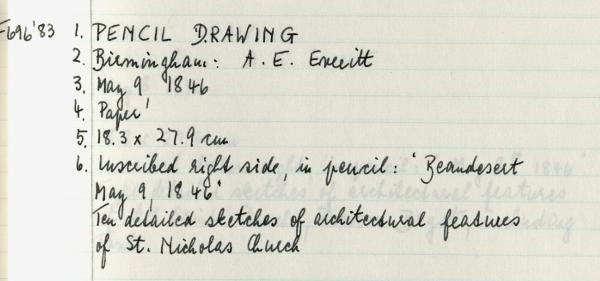 F696'83 1. PENCIL DRAWING
2. Birmingham: A. E. Everitt
3. May 9 1846
4. Paper'
5. 18.3 x 27.9 cm
6. Inscribed right side, in pencil: 'Beaudesert
May 9, 1846'
Ten detailed sketches of architectural features
of St. Nicholas Church